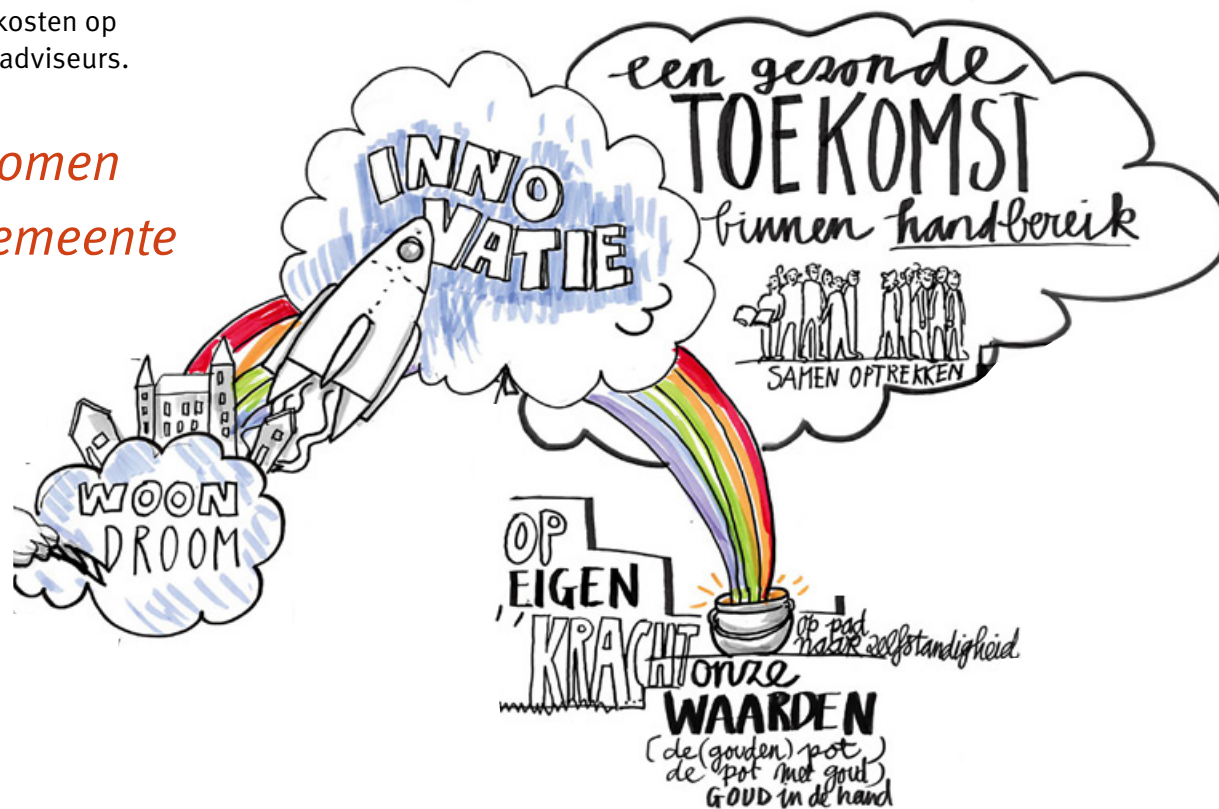 kosten op
adviseurs.
omen
emeente
een gezonde
TOEKOMST
binnen handbereik
SAMEN OPTREKKEN
INNO
VATIE
WOON
DROOM
OP
EIGEN
KRACHT
op pad
naar zelfstandigheid
onze
WAARDEN
(de (gouden) pot)
de pot met goud)
GOUD in de hand